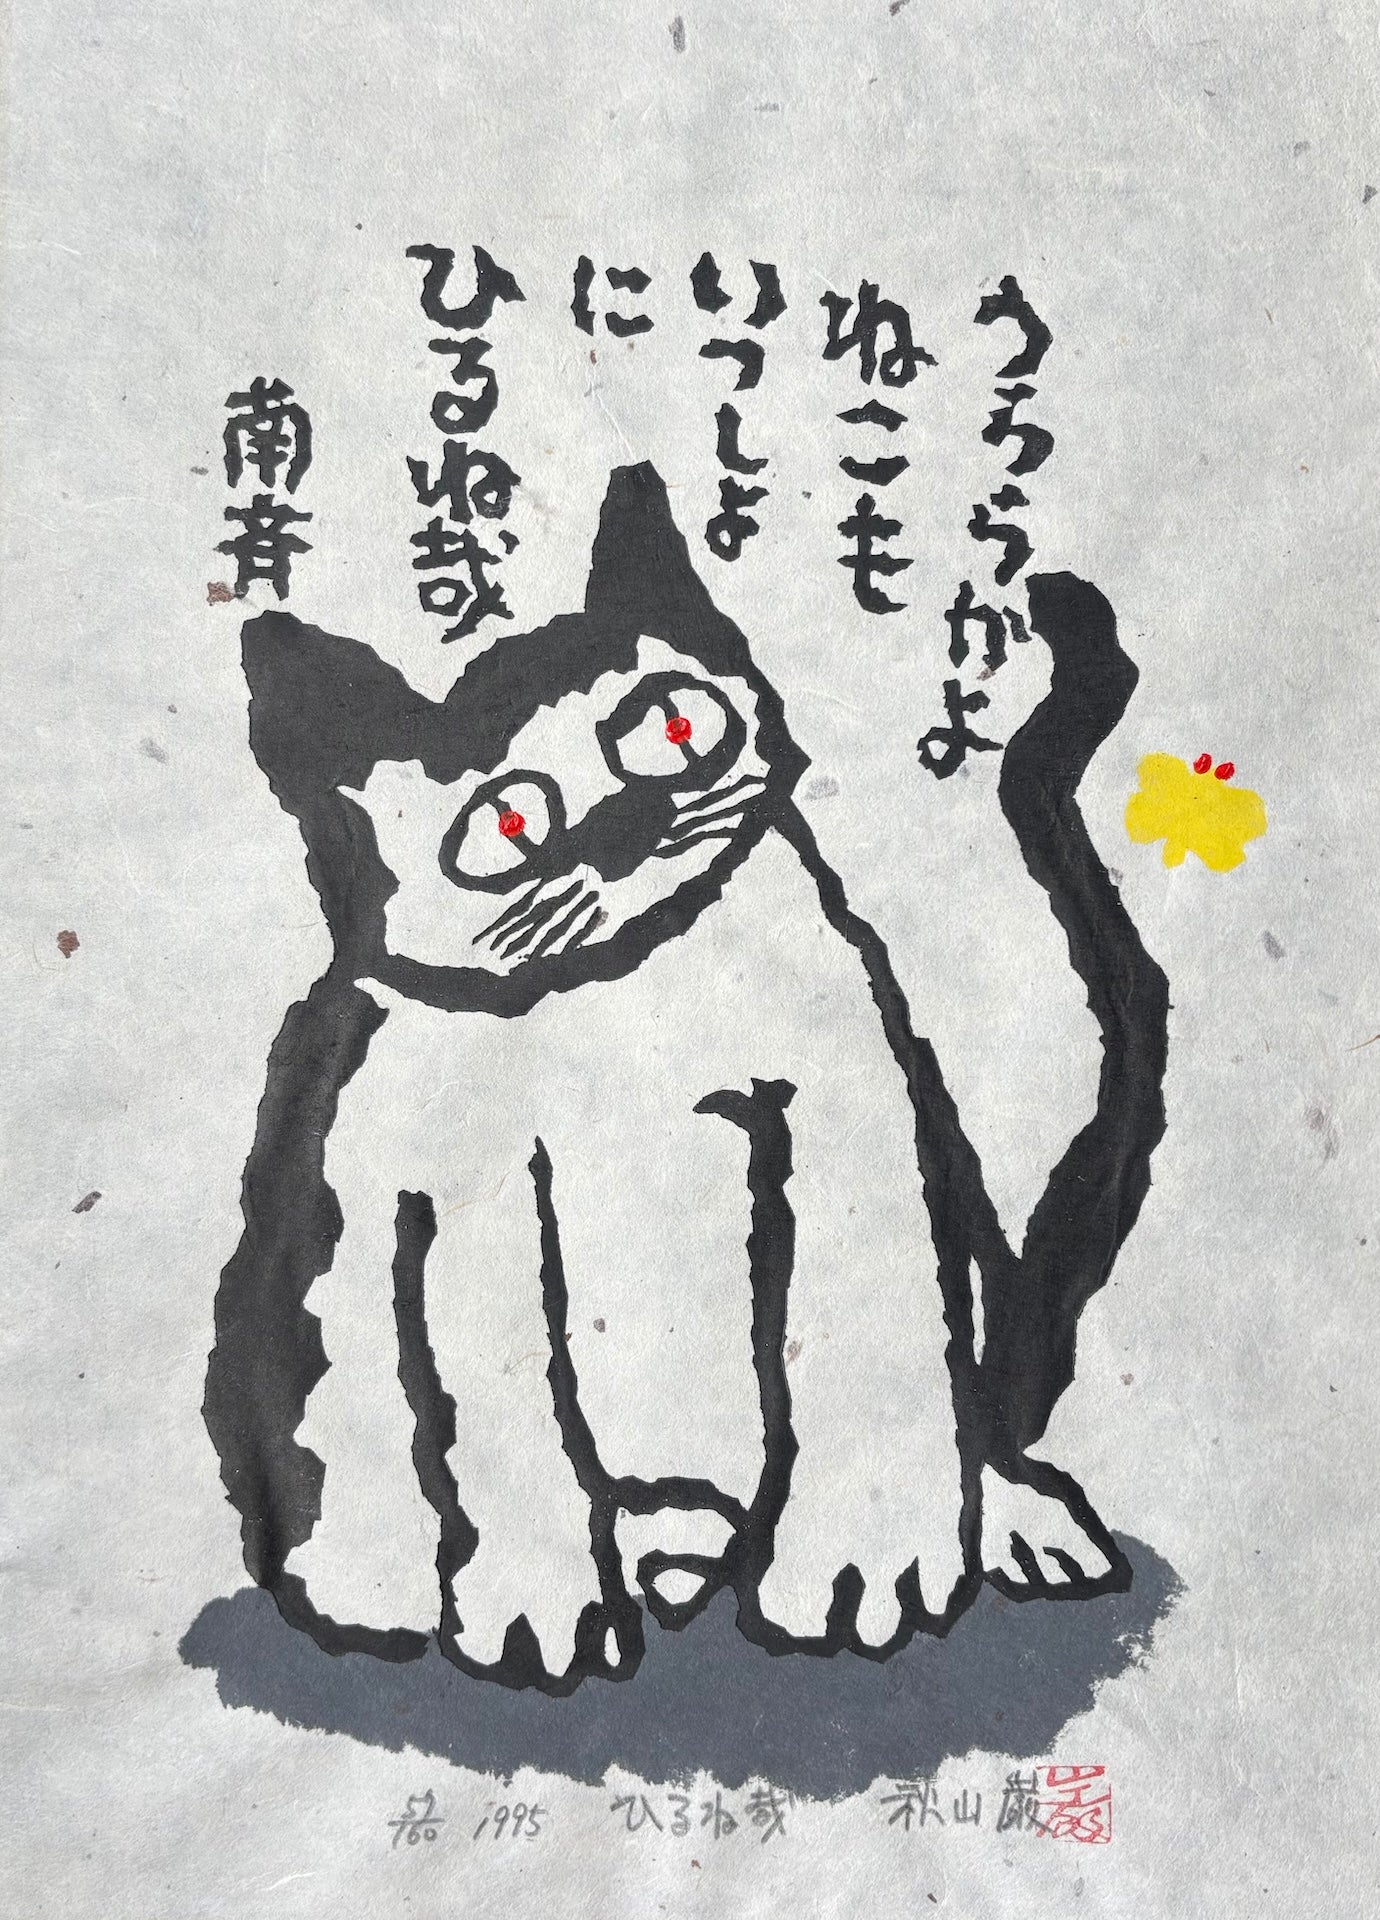 うららかよ
ねこも
いっしょ
に
ひるね哉
南斉
57/100 1995 ひるね哉 秋山巌